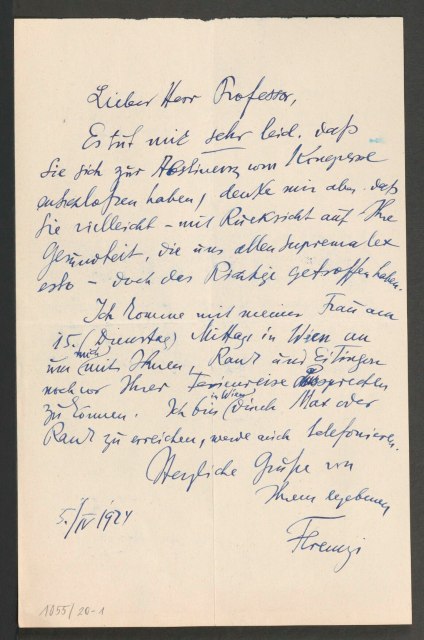 Lieber Herr Professor,
Es tut mir sehr leid, daß
Sie sich zur Abstinenz vom Kongresse
entschloßen haben, denke mir aber, daß
Sie vielleicht – mit Rücksicht auf Ihre
Gesundheit, die uns allen suprema lex
esto – doch das Richtige getroffen haben.
Ich komme mit meiner Frau am
15. (Dienstag) Mittags in Wien an
um mich mit Ihnen, Rank und Eitingon
noch vor Ihrer Ferienreise aussprechen
zu können. Ich bin in Wien durch oder
Rank zu erreichen, werde auch telefonieren.
Herzliche Grüße von
Ihrem ergebenen
Ferenczi
5./IV 1924
1055/20-1